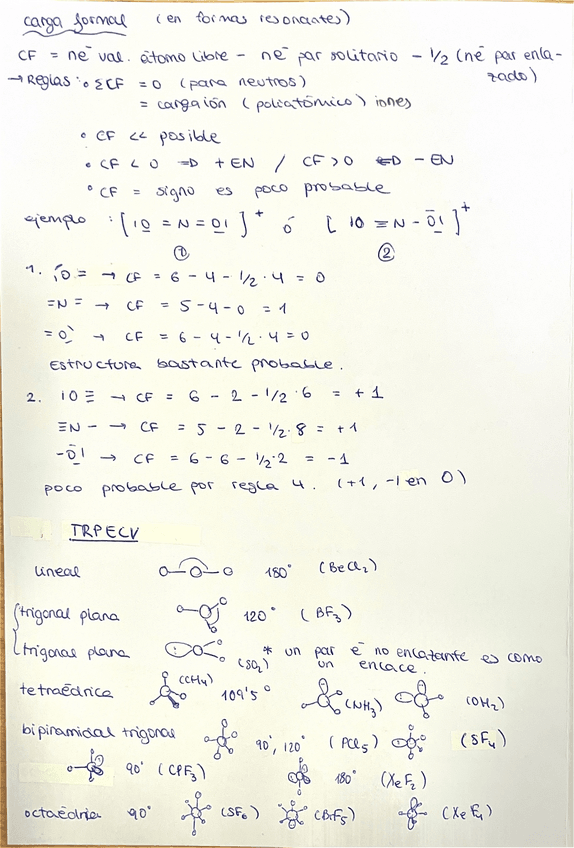 carga formal (en formas resonantes)
CF = nē val. átomo libre - nē par solitario - 1/2 (nē par enla-
zado)
→ Reglas: • ΣCF = 0 (para neutros)
= carga ión (poliatómico) iones
• CF << posible
• CF < 0 ⇒ + EN / CF > 0 ⇐ - EN
• CF = signo es poco probable
ejemplo : [ |O̲ = N = O̲| ]⁺ ó [ |O ≡ N - Ō̲| ]⁺
① ②
1. |O̲ = → CF = 6 - 4 - 1/2 · 4 = 0
= N = → CF = 5 - 4 - 0 = 1
= O̲| → CF = 6 - 4 - 1/2 · 4 = 0
Estructura bastante probable.
2. |O ≡ → CF = 6 - 2 - 1/2 · 6 = + 1
≡N - → CF = 5 - 2 - 1/2 · 8 = + 1
-Ō̲| → CF = 6 - 6 - 1/2 · 2 = -1
poco probable por regla 4. (+1, -1 en O)
TRPECV
lineal 180° (BeCl₂)
trigonal plana 120° (BF₃)
trigonal plana (SO₂) * un par ē no enlazante es como
un enlace.
tetraédrica (CH₄) 109'5° (NH₃) (OH₂)
bipiramidal trigonal 90°, 120° (PCl₅) (SF₄)
90° (ClF₃) 180° (XeF₂)
octaédrica 90° (SF₆) (BrF₅) (XeF₄)